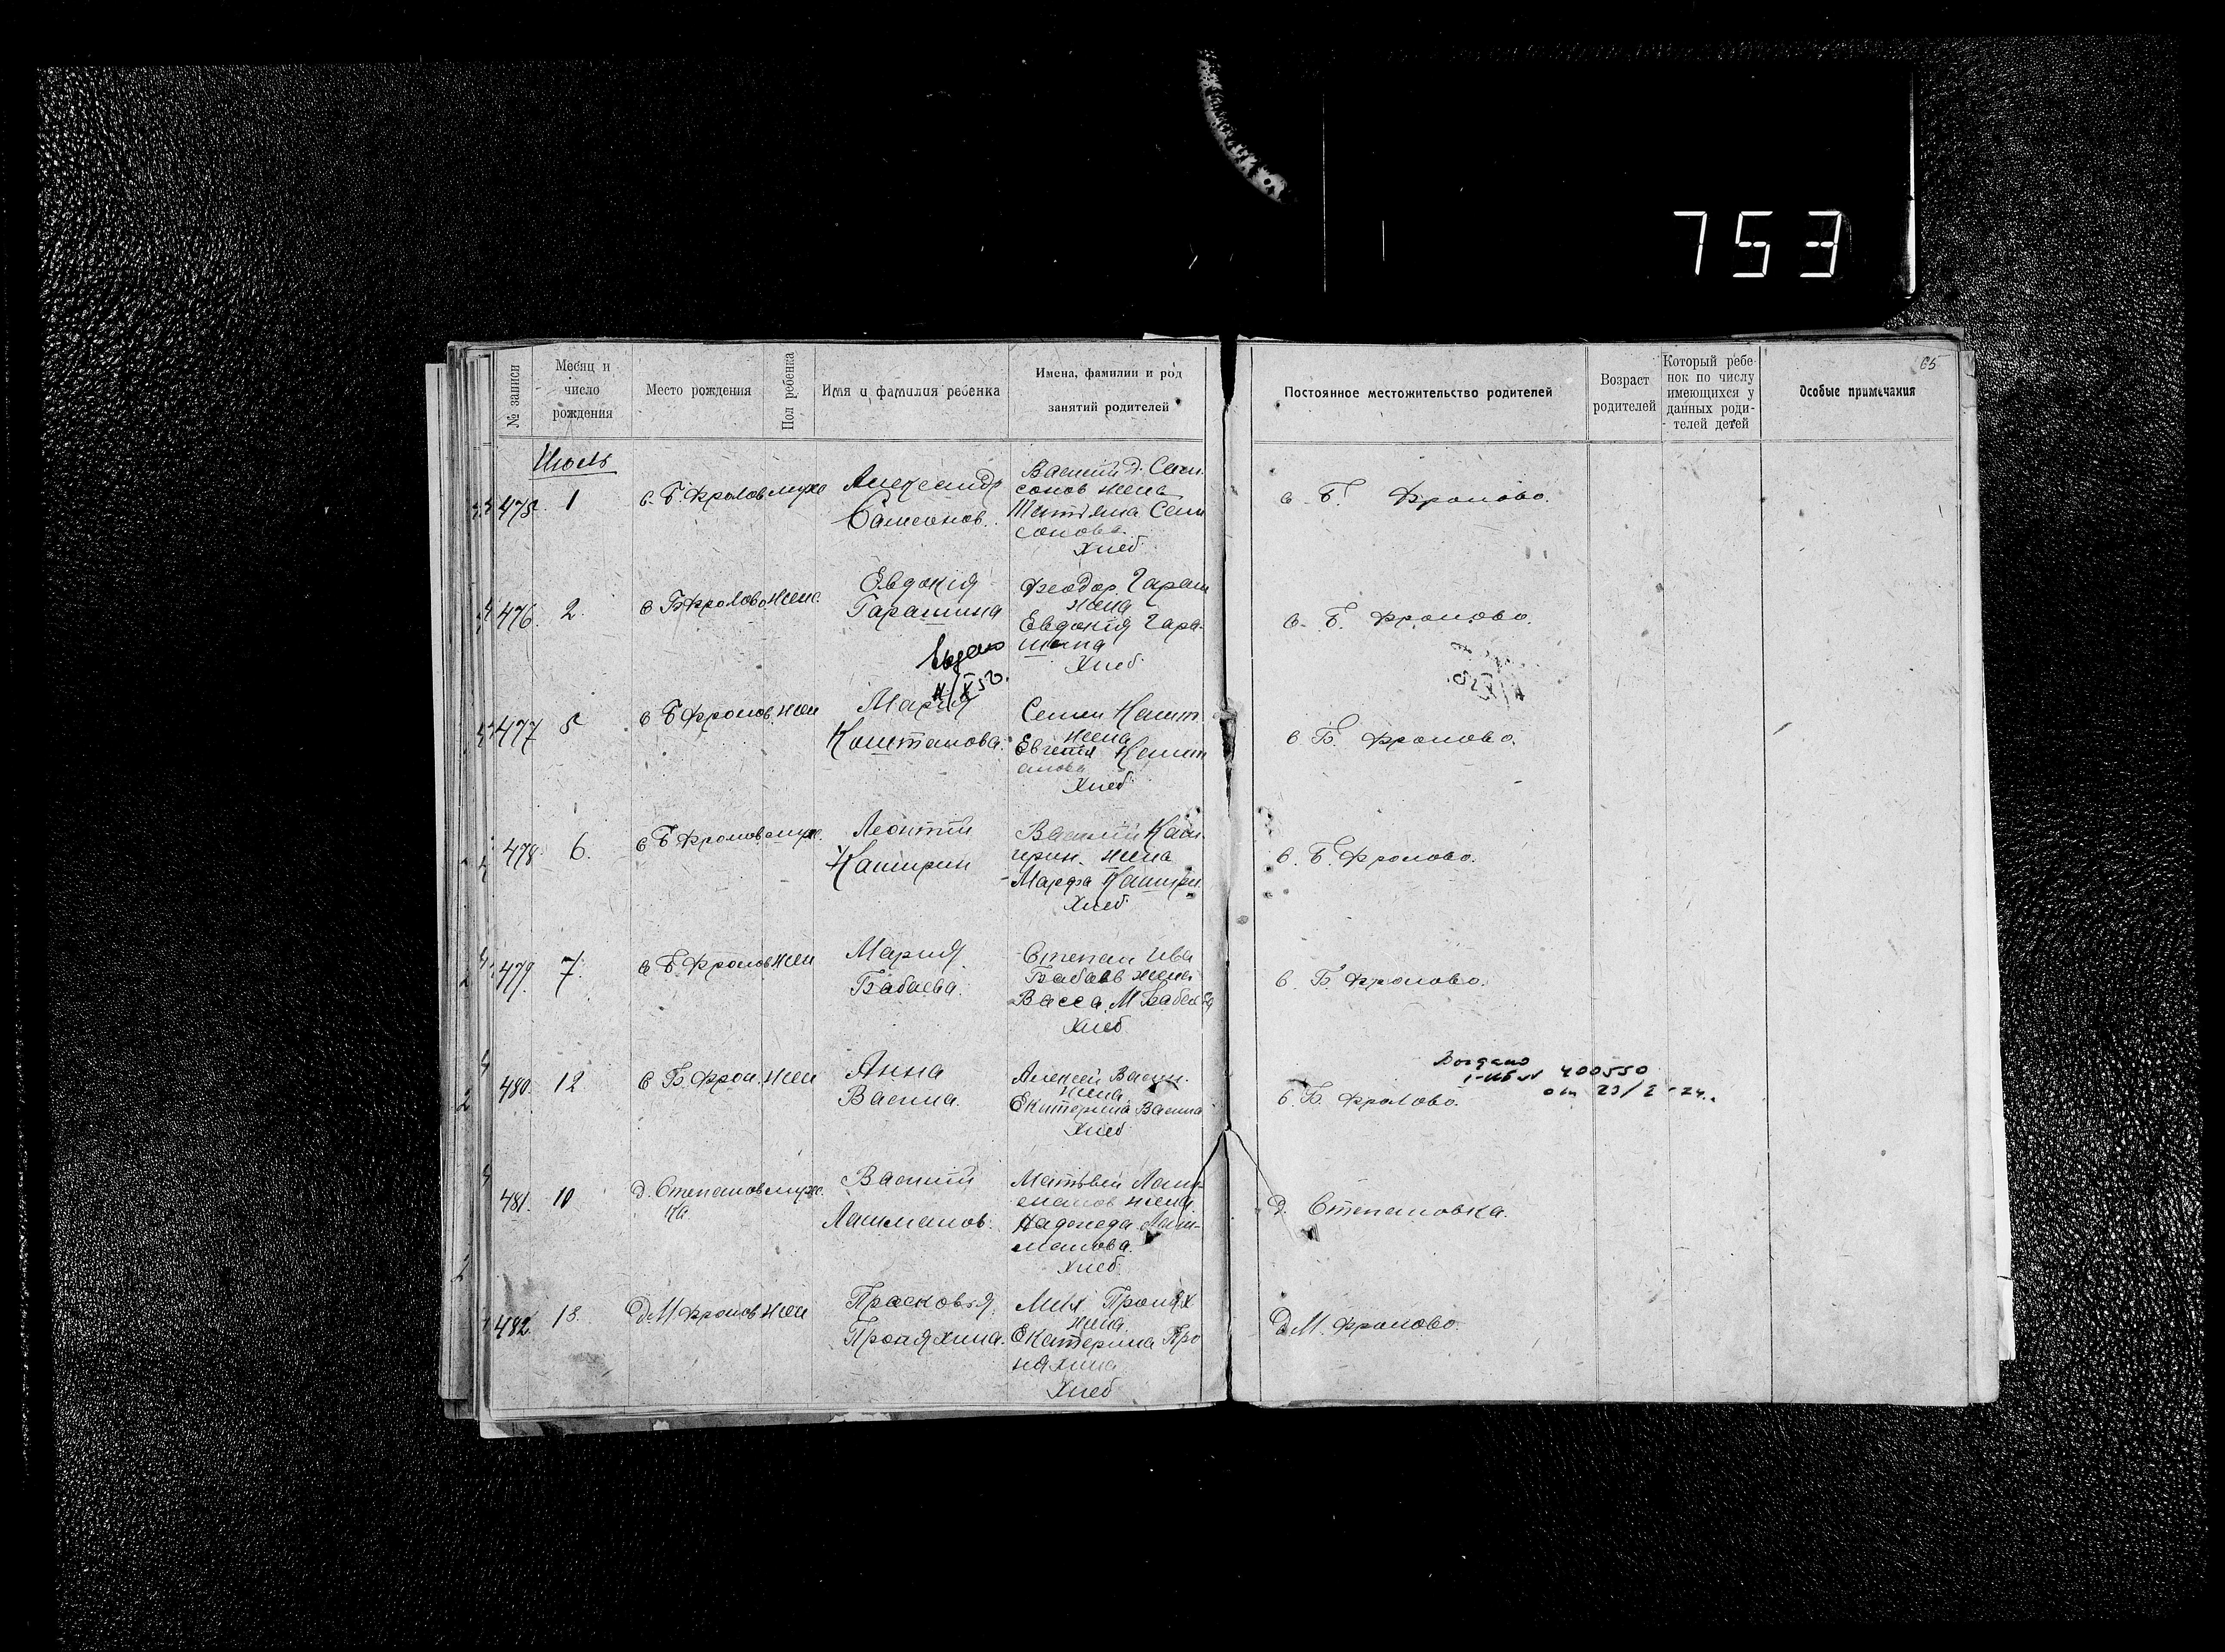 753
65
№ записи
Месяц и число рождения
Место рождения
Пол ребенка
Имя и фамилия ребенка
Имена, фамилии и род занятий родителей
Постоянное местожительство родителей
Возраст родителей
Который ребенок по числу имеющихся у данных родителей детей
Особые примечания
475 1 с. Б. Фролов муж
Александр
Самсонов.
сонов жена
сонова.
Хлеб.
с. Б. Фролово.
476. 2. с Б Фролово жен.
Евдокия
Гарашина
Феодор Гараш
жена
Евдокия Гара-
шина
Хлеб.
с. Б. Фролово.
477 5 с Б Фролов. жен
Мария
Каштанова.
Семен Кашт.
жена
Евгения Кашт
анова
Хлеб
с Б. Фролово.
478 6. с Б Фролов муж.
Леонтий
Каширин
Василий Каш.
ирин. жена
Марфа Кашири.
Хлеб.
с. Б. Фролово.
479. 7. с Б. Фролов жен
Мария
Бабаева.
Степан Ива
Бабаев жена
Васса М Бабаева
Хлеб
с. Б. Фролово.
480. 12 с Б. Фрол. жен
Анна
Васина.
Алексей Васин.
жена
Екатерина Васина
Хлеб
400550
с. Б. Фролово.
481. 10 д. Степанов муж.
ка
Василий
Лашманов.
Матвей Лаш-
манов жена
Надежда Лаш-
манова.
Хлеб.
д. Степановка.
482. 13. Д М. Фролов жен
Прасковья
Проняхина.
Мих Пронях
жена
Екатерина Про
няхина
Хлеб
Д М. Фролово